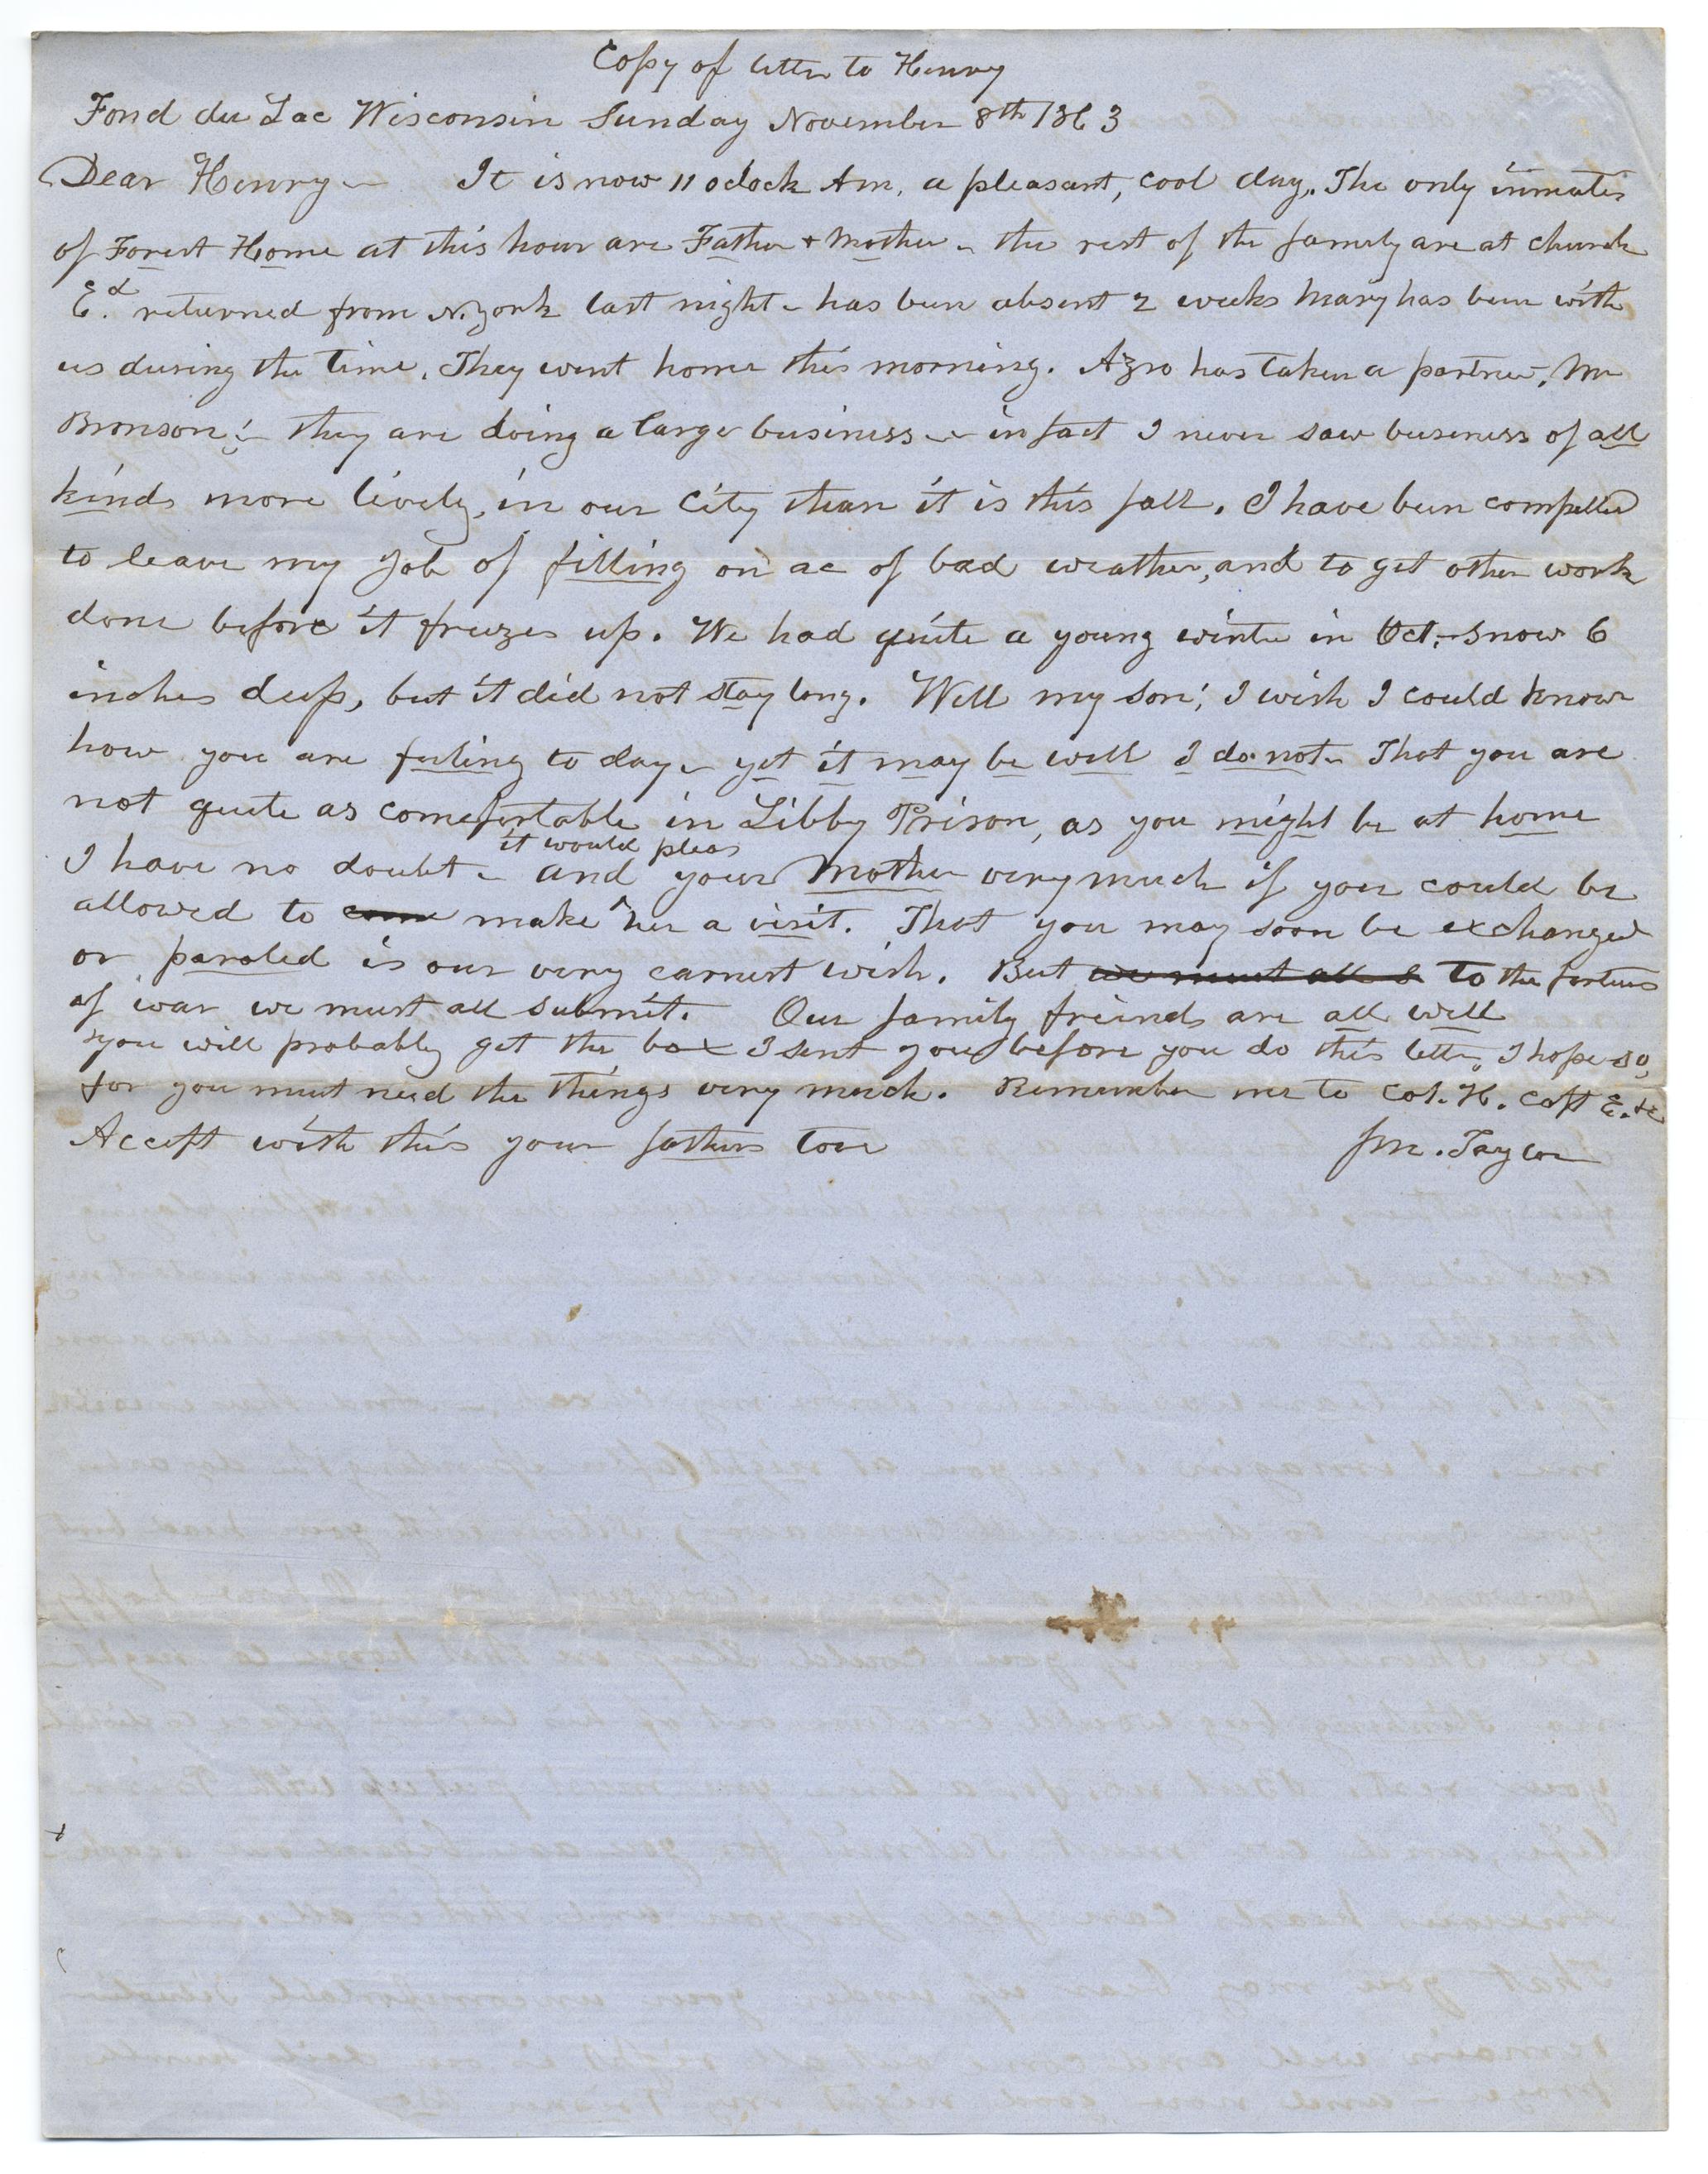 Copy of letter to Henry
Fond du Lac Wisconsin Sunday November 8th 1863
Dear Henry - It is now 11 oclock Am, a pleasant, cool day. The only inmates
of Forest Home at this hour are Father + Mother - the rest of the family are at church
Ed. returned from N. York last night - has been absent 2 weeks Mary has been with
us during the time. They went home this morning. Azro has taken a partner, Mr
Bronson; - they are doing a large business - in fact I never saw business of all
kinds more lively, in our City than it is this fall. I have been compelled
to leave my Job of filling on ac of bad weather, and to get other work
done before it freezes up. We had quite a young winter in Oct. - snow 6
inches deep, but it did not stay long. Well my son; I wish I could know
how you are feeling to day - yet it may be well I do not - That you are
not quite as comefortable in Libby Prison, as you might be at home
I have no doubt - and your Mother very much if you could be
it would pleas
allowed to come make her a visit. That you may soon be exchanged
or paroled is our very earnest wish. But we must all s To the fortunes
of war we must all submit. Our family friends are all well
you will probably get the box I sent you before you do this letter, I hope so,
for you must need the things very much. Remember me to Col. H. Capt E. &c
Accept with this your fathers love JM. Taylor